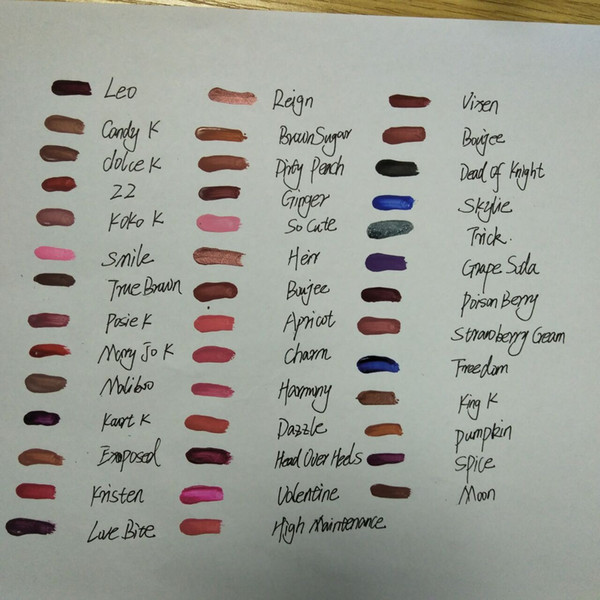 Leo
Candy K
dolce K
22
KoKo K
Smile
True Brown
Posie K
Mary Jo K
Maliboo
Kourt K
Exposed
Kristen
Love Bite
Reign
Brown Sugar
Dirty Peach
Ginger
So Cute
Herr
Boujee
Apricot
Charm
Harmony
Dazzle
Head Over Heels
Valentine
High Maintenance
Vixen
Boujee
Dead of Knight
Skylie
Trick.
Grape Soda
Poison Berry
Strawberry Cream
Freedom
King K
Pumpkin
Spice
Moon